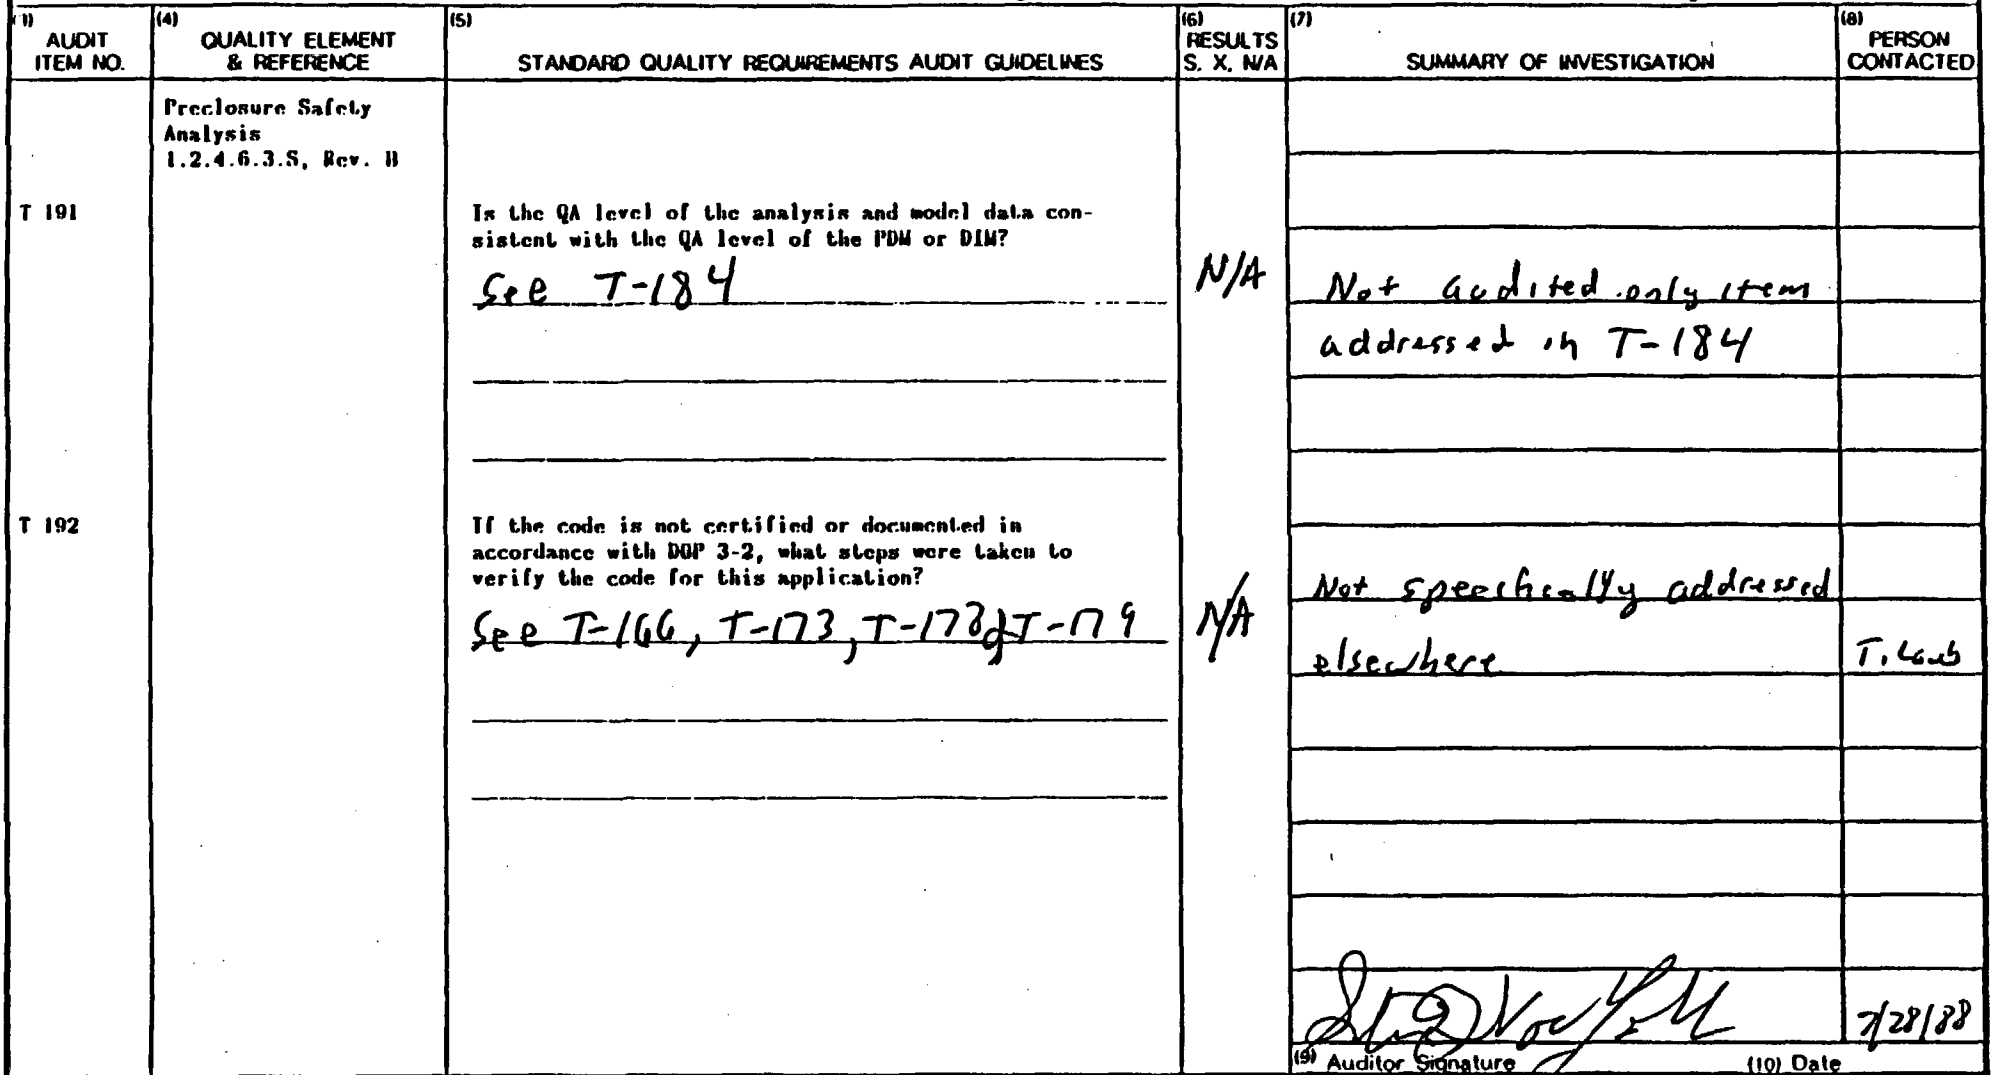 (1) AUDIT ITEM NO.
(4) QUALITY ELEMENT & REFERENCE
(5) STANDARD QUALITY REQUIREMENTS AUDIT GUIDELINES
(6) RESULTS S. X, N/A
(7) SUMMARY OF INVESTIGATION
(8) PERSON CONTACTED
Preclosure Safety
Analysis
1.2.4.6.3.S, Rev. B
T 191
Is the QA level of the analysis and model data con-
sistent with the QA level of the PDM or DIM?
See T-184
N/A
Not audited only item
addressed in T-184
T 192
If the code is not certified or documented in
accordance with DOP 3-2, what steps were taken to
verify the code for this application?
See T-166, T-173, T-178 & T-179
N/A
Not specifically addressed
elsewhere
T.
7/28/88
(9) Auditor Signature
(10) Date